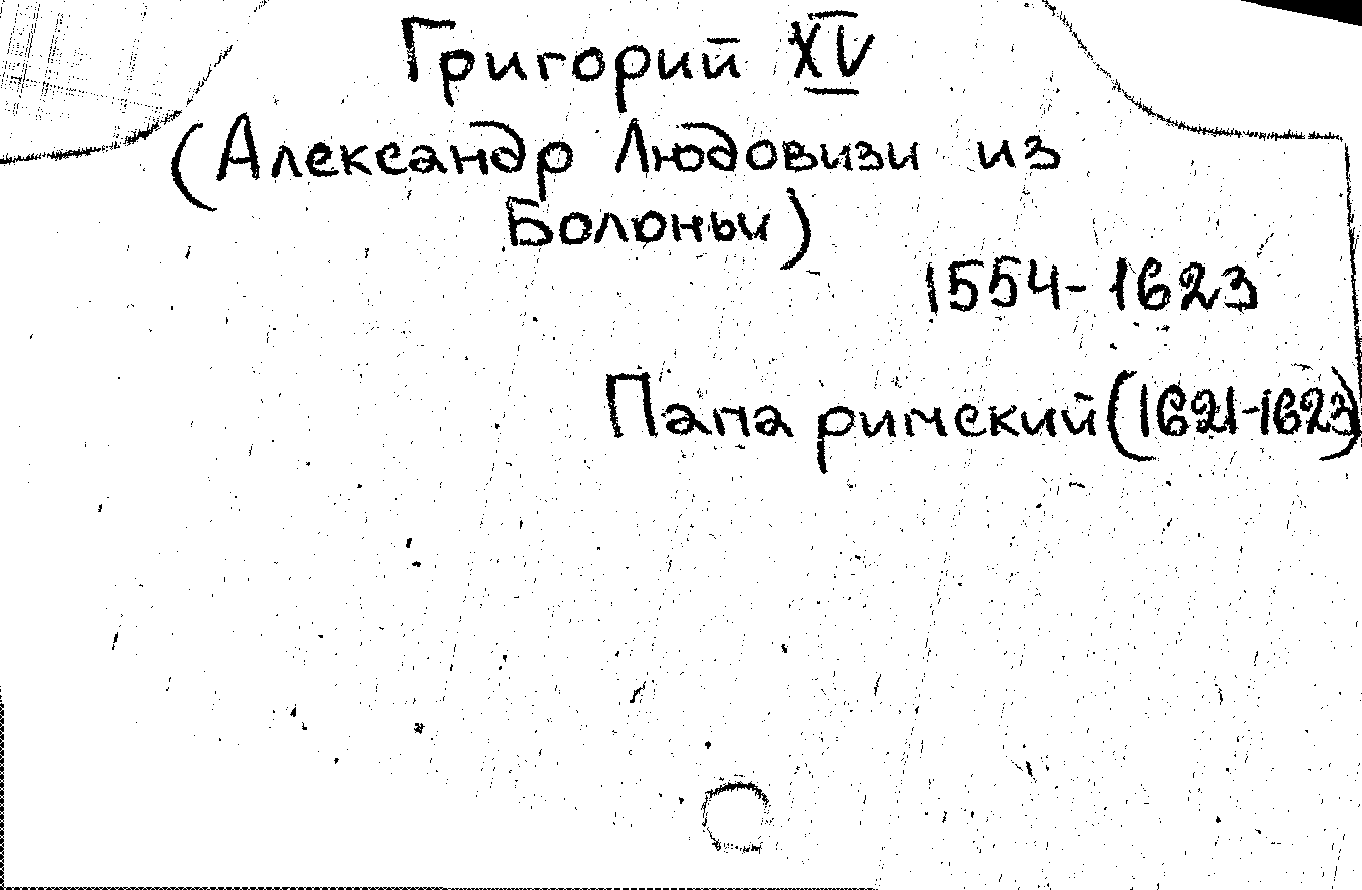 Григорий XV
(Александр Людовизи из
Болоньи)
1554-1623
Папа римский (1621-1623)